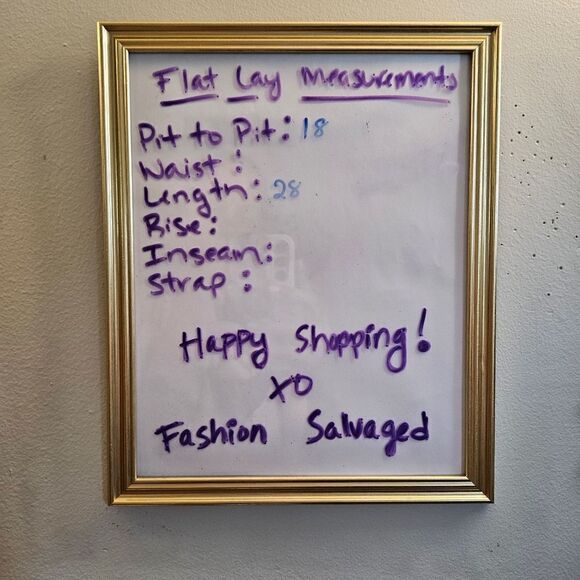 Flat Lay Measurements
Pit to Pit: 18
Waist:
Length: 28
Rise:
Inseam:
Strap:
Happy Shopping!
XO
Fashion Salvaged